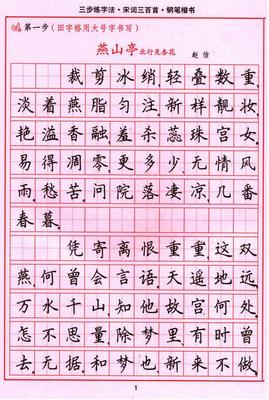 三步练字法·宋词三百首·钢笔楷书
第一步(田字格用大号字书写)
燕山亭 北行见杏花 赵佶
裁剪冰绡轻叠数重
淡着燕脂匀注新样靓妆
艳溢香融羞杀蕊珠宫女
易得凋零更多少无情风
雨愁苦问院落凄凉几番
春暮
凭寄离恨重重这双
燕何曾会言语天遥地远
万水千山知他故宫何处
怎不思量除梦里有时曾
去无据和梦也新来不做
1